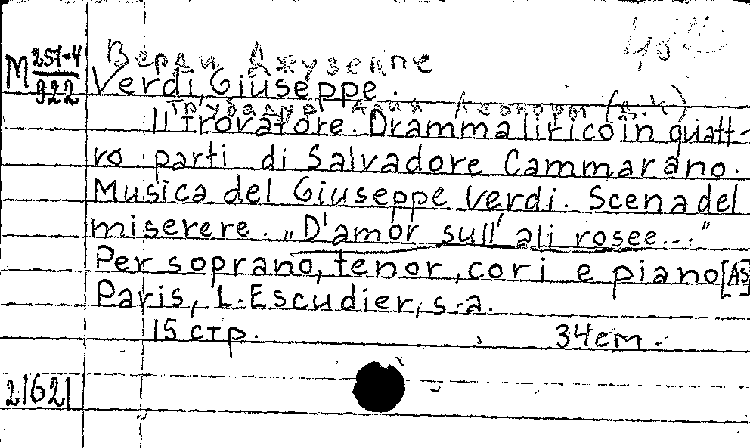 Верди Джузеппе
M 251-4/922
Verdi, Giuseppe.
Трубадур
Il trovatore. Dramma lirico in quatt-
ro parti di Salvadore Cammarano.
Musica del Giuseppe Verdi. Scena del
miserere. „D'amor sull' ali rosee..."
Per soprano, tenor, cori e piano [AS]
Paris, L. Escudier, s.a.
15 стр. 34 см.
21621